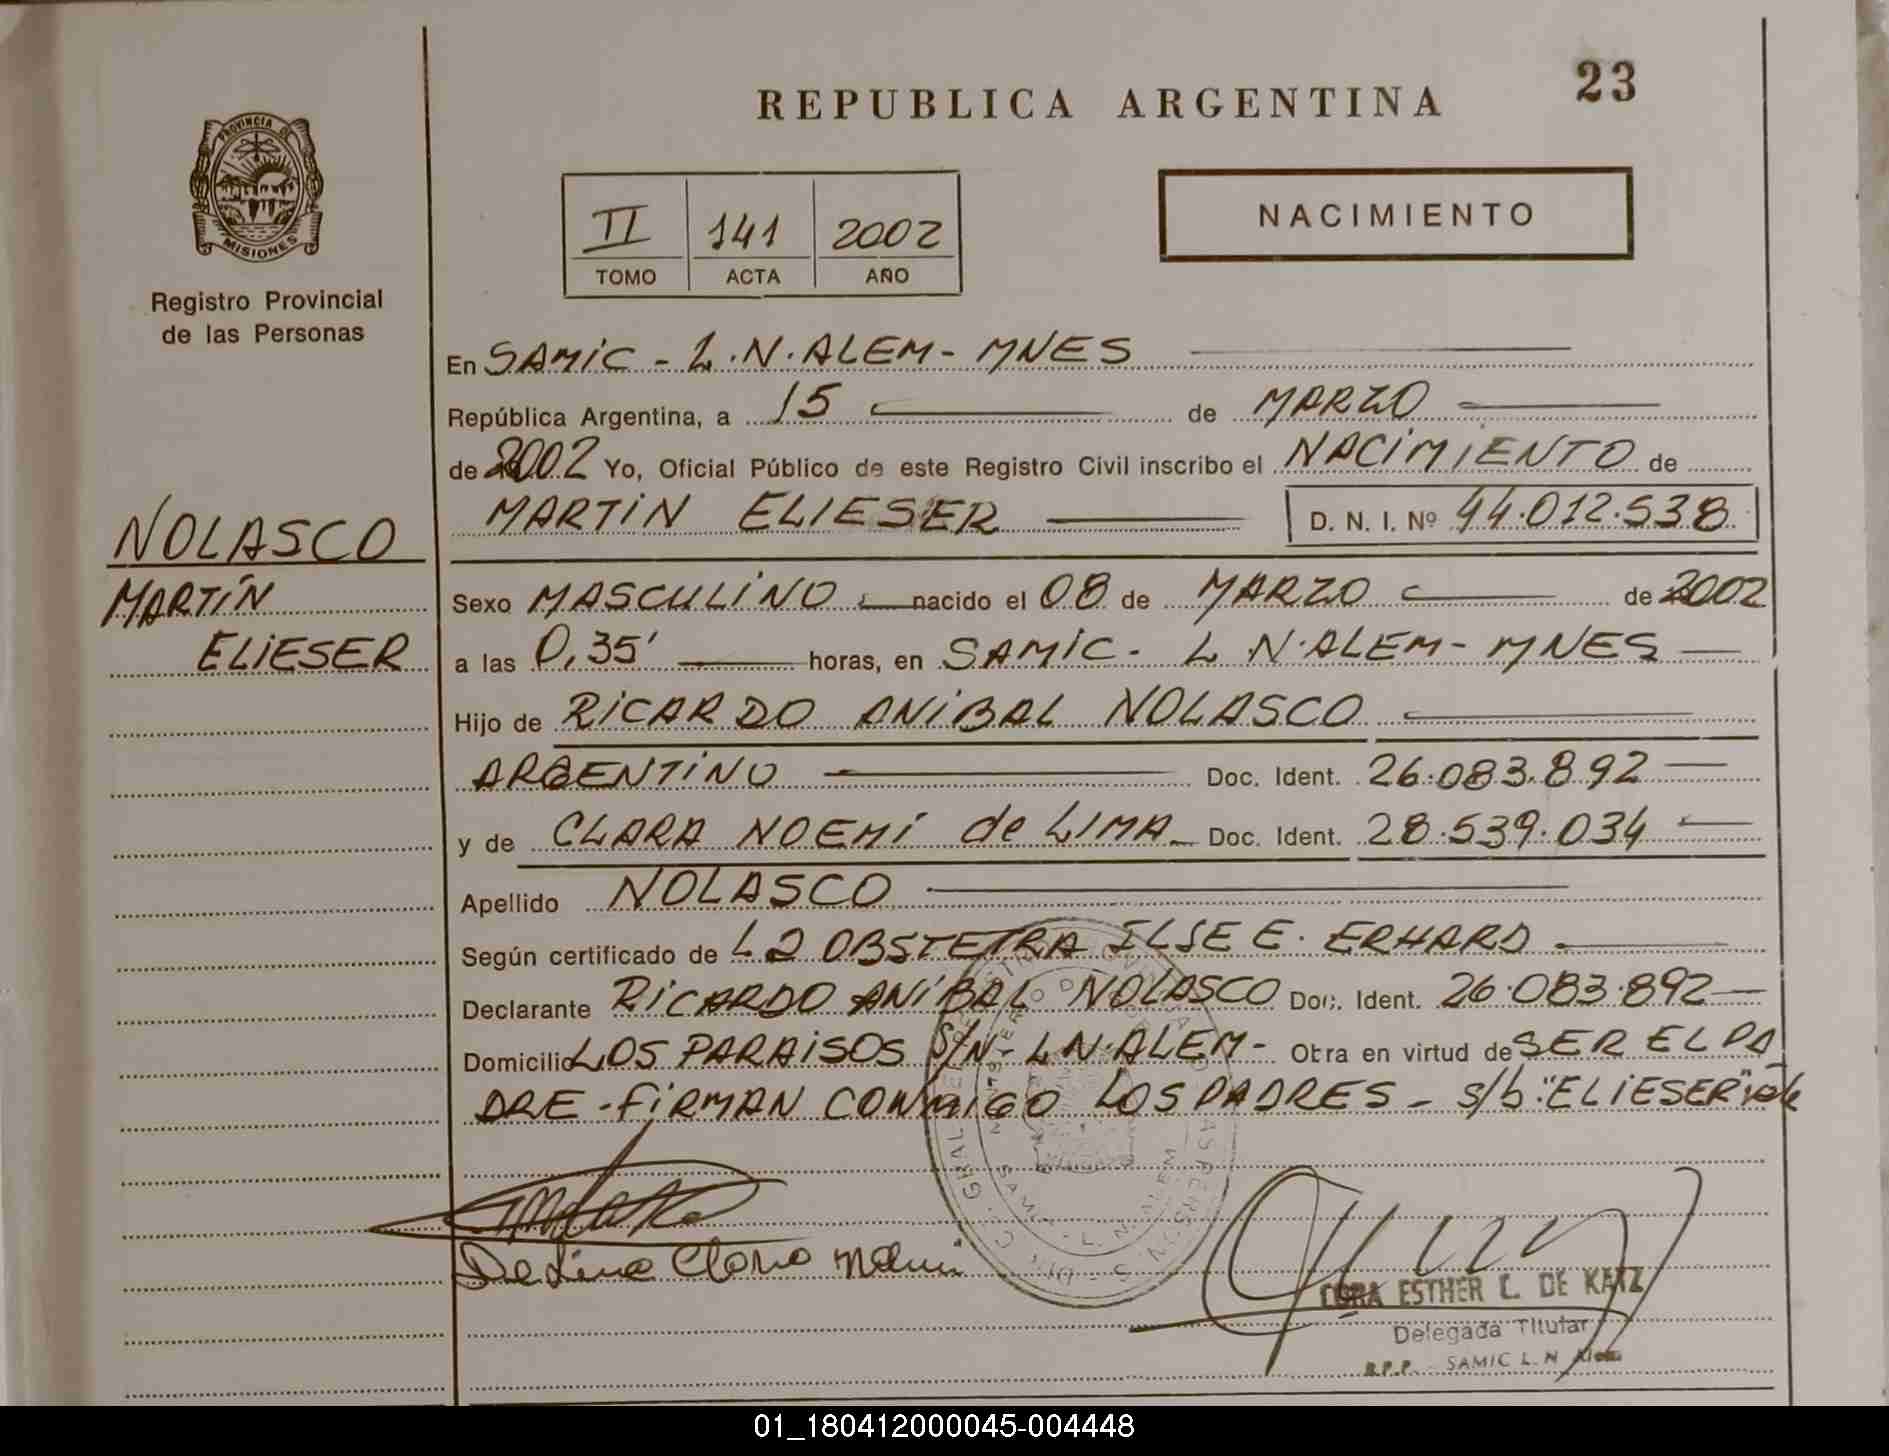 REPUBLICA ARGENTINA
23
PROVINCIA DE
MISIONES
Registro Provincial
de las Personas
II 141 2002
TOMO ACTA AÑO
NACIMIENTO
En SAMIC - L.N.ALEM - MNES
República Argentina, a 15 de MARZO
de 2002 Yo, Oficial Público de este Registro Civil inscribo el NACIMIENTO de
MARTIN ELIESER D. N. I. Nº 44.012.538
NOLASCO
MARTÍN
ELIESER
Sexo MASCULINO nacido el 08 de MARZO de 2002
a las 0,35' horas, en SAMIC - L N.ALEM - MNES
Hijo de RICARDO ANIBAL NOLASCO
ARGENTINO Doc. Ident. 26.083.892
y de CLARA NOEMI de LIMA Doc. Ident. 28.539.034
Apellido NOLASCO
Según certificado de LA OBSTETRA ILSE E. ERHARD
Declarante RICARDO ANIBAL NOLASCO Doc. Ident. 26.083.892
Domicilio LOS PARAISOS S/N - L N.ALEM - Obra en virtud de SER EL PA
DRE - FIRMAN CONMIGO LOS PADRES - s/b: "ELIESER" vale
De Lima Clara Noemi
CORA ESTHER L. DE KATZ
Delegada Titular
R.P.P. - SAMIC L. N. Alem
01_180412000045-004448